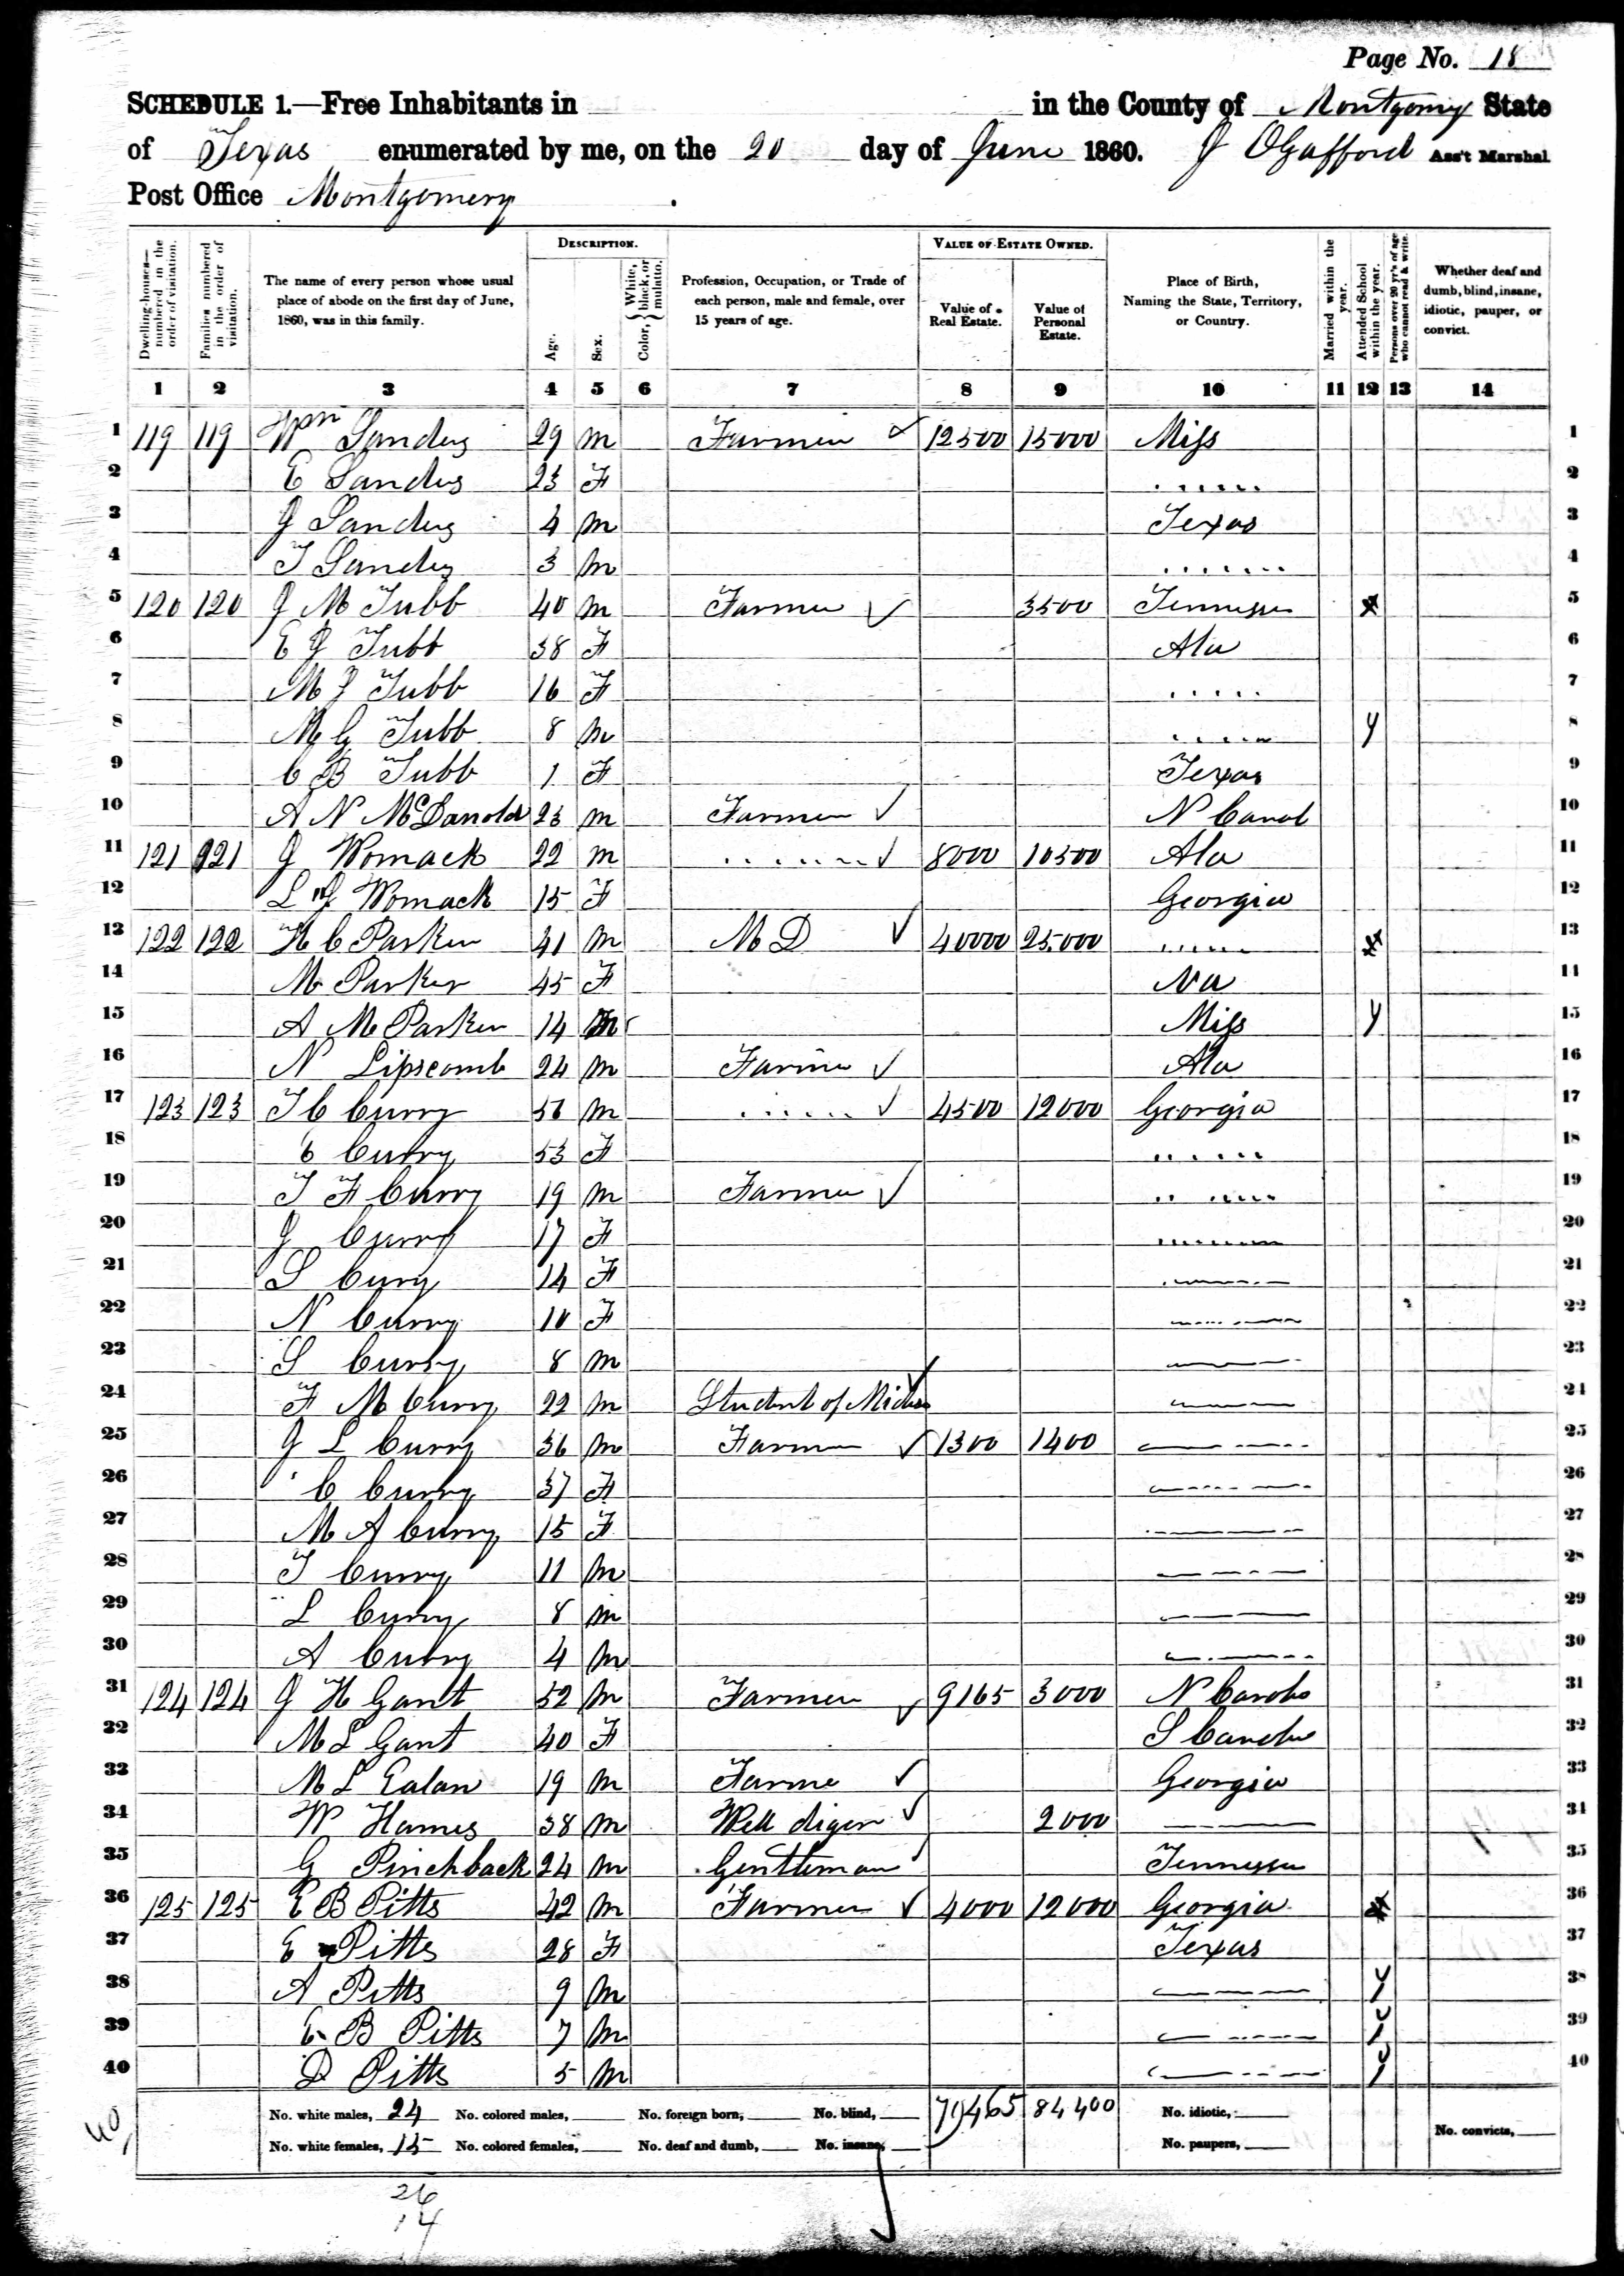 Page No. 18
SCHEDULE 1.—Free Inhabitants in in the County of Montgomery State
of Texas enumerated by me, on the 20 day of June 1860. J O Gafford Ass't Marshal
Post Office Montgomery
Dwelling-houses—numbered in the order of visitation. Families numbered in the order of visitation. The name of every person whose usual place of abode on the first day of June, 1860, was in this family. DESCRIPTION. Age. Sex. Color, White, black, or mulatto. Profession, Occupation, or Trade of each person, male and female, over 15 years of age. VALUE OF ESTATE OWNED. Value of Real Estate. Value of Personal Estate. Place of Birth, Naming the State, Territory, or Country. Married within the year. Attended School within the year. Persons over 20 yr's of age who cannot read & write. Whether deaf and dumb, blind, insane, idiotic, pauper, or convict.
1 2 3 4 5 6 7 8 9 10 11 12 13 14
1 119 119 Wm Sanders 29 m Farmer 12500 15000 Miss 1
2 E Sanders 23 F 2
3 J Sanders 4 m Texas 3
4 T Sanders 3 m 4
5 120 120 J M Tubb 40 m Farmer 3500 Tennessee 5
6 E J Tubb 38 F Ala 6
7 M J Tubb 16 F 7
8 M G Tubb 8 m Y 8
9 C B Tubb 1 F Texas 9
10 A N McDanold 23 m Farmer N Carol 10
11 121 121 J Womack 22 m 8000 10500 Ala 11
12 L J Womack 15 F Georgia 12
13 122 122 H C Parker 41 m M D 40000 25000 13
14 M Parker 45 F 14
15 A M Parker 14 m Miss Y 15
16 N Lipscomb 24 m Farmer Ala 16
17 123 123 T C Curry 56 m 4500 12000 Georgia 17
18 C Curry 53 F 18
19 T F Curry 19 m Farmer 19
20 J Curry 17 F 20
21 S Curry 14 F 21
22 N Curry 10 F 22
23 S Curry 8 m 23
24 F M Curry 22 m Student of 24
25 J L Curry 36 m Farmer 1300 1400 25
26 C Curry 37 F 26
27 M A Curry 15 F 27
28 T Curry 11 m 28
29 L Curry 8 m 29
30 A Curry 4 m 30
31 124 124 J H Gant 52 m Farmer 9165 3000 N Carolo 31
32 M L Gant 40 F S 32
33 M L Ealan 19 m Farme Georgia 33
34 W Hames 38 m Well diger 2000 34
35 G Pinchback 24 m Gentleman Tennessee 35
36 125 125 E B Pitts 42 m Farmer 4000 12000 Georgia 36
37 E Pitts 28 F Texas 37
38 A Pitts 9 m Y 38
39 E B Pitts 7 m Y 39
40 D Pitts 5 m Y 40
No. white males, 24 No. colored males, No. foreign born, No. blind, 79465 84400 No. idiotic,
No. white females, 15 No. colored females, No. deaf and dumb, No. insane, No. paupers, No. convicts,
40
26
14